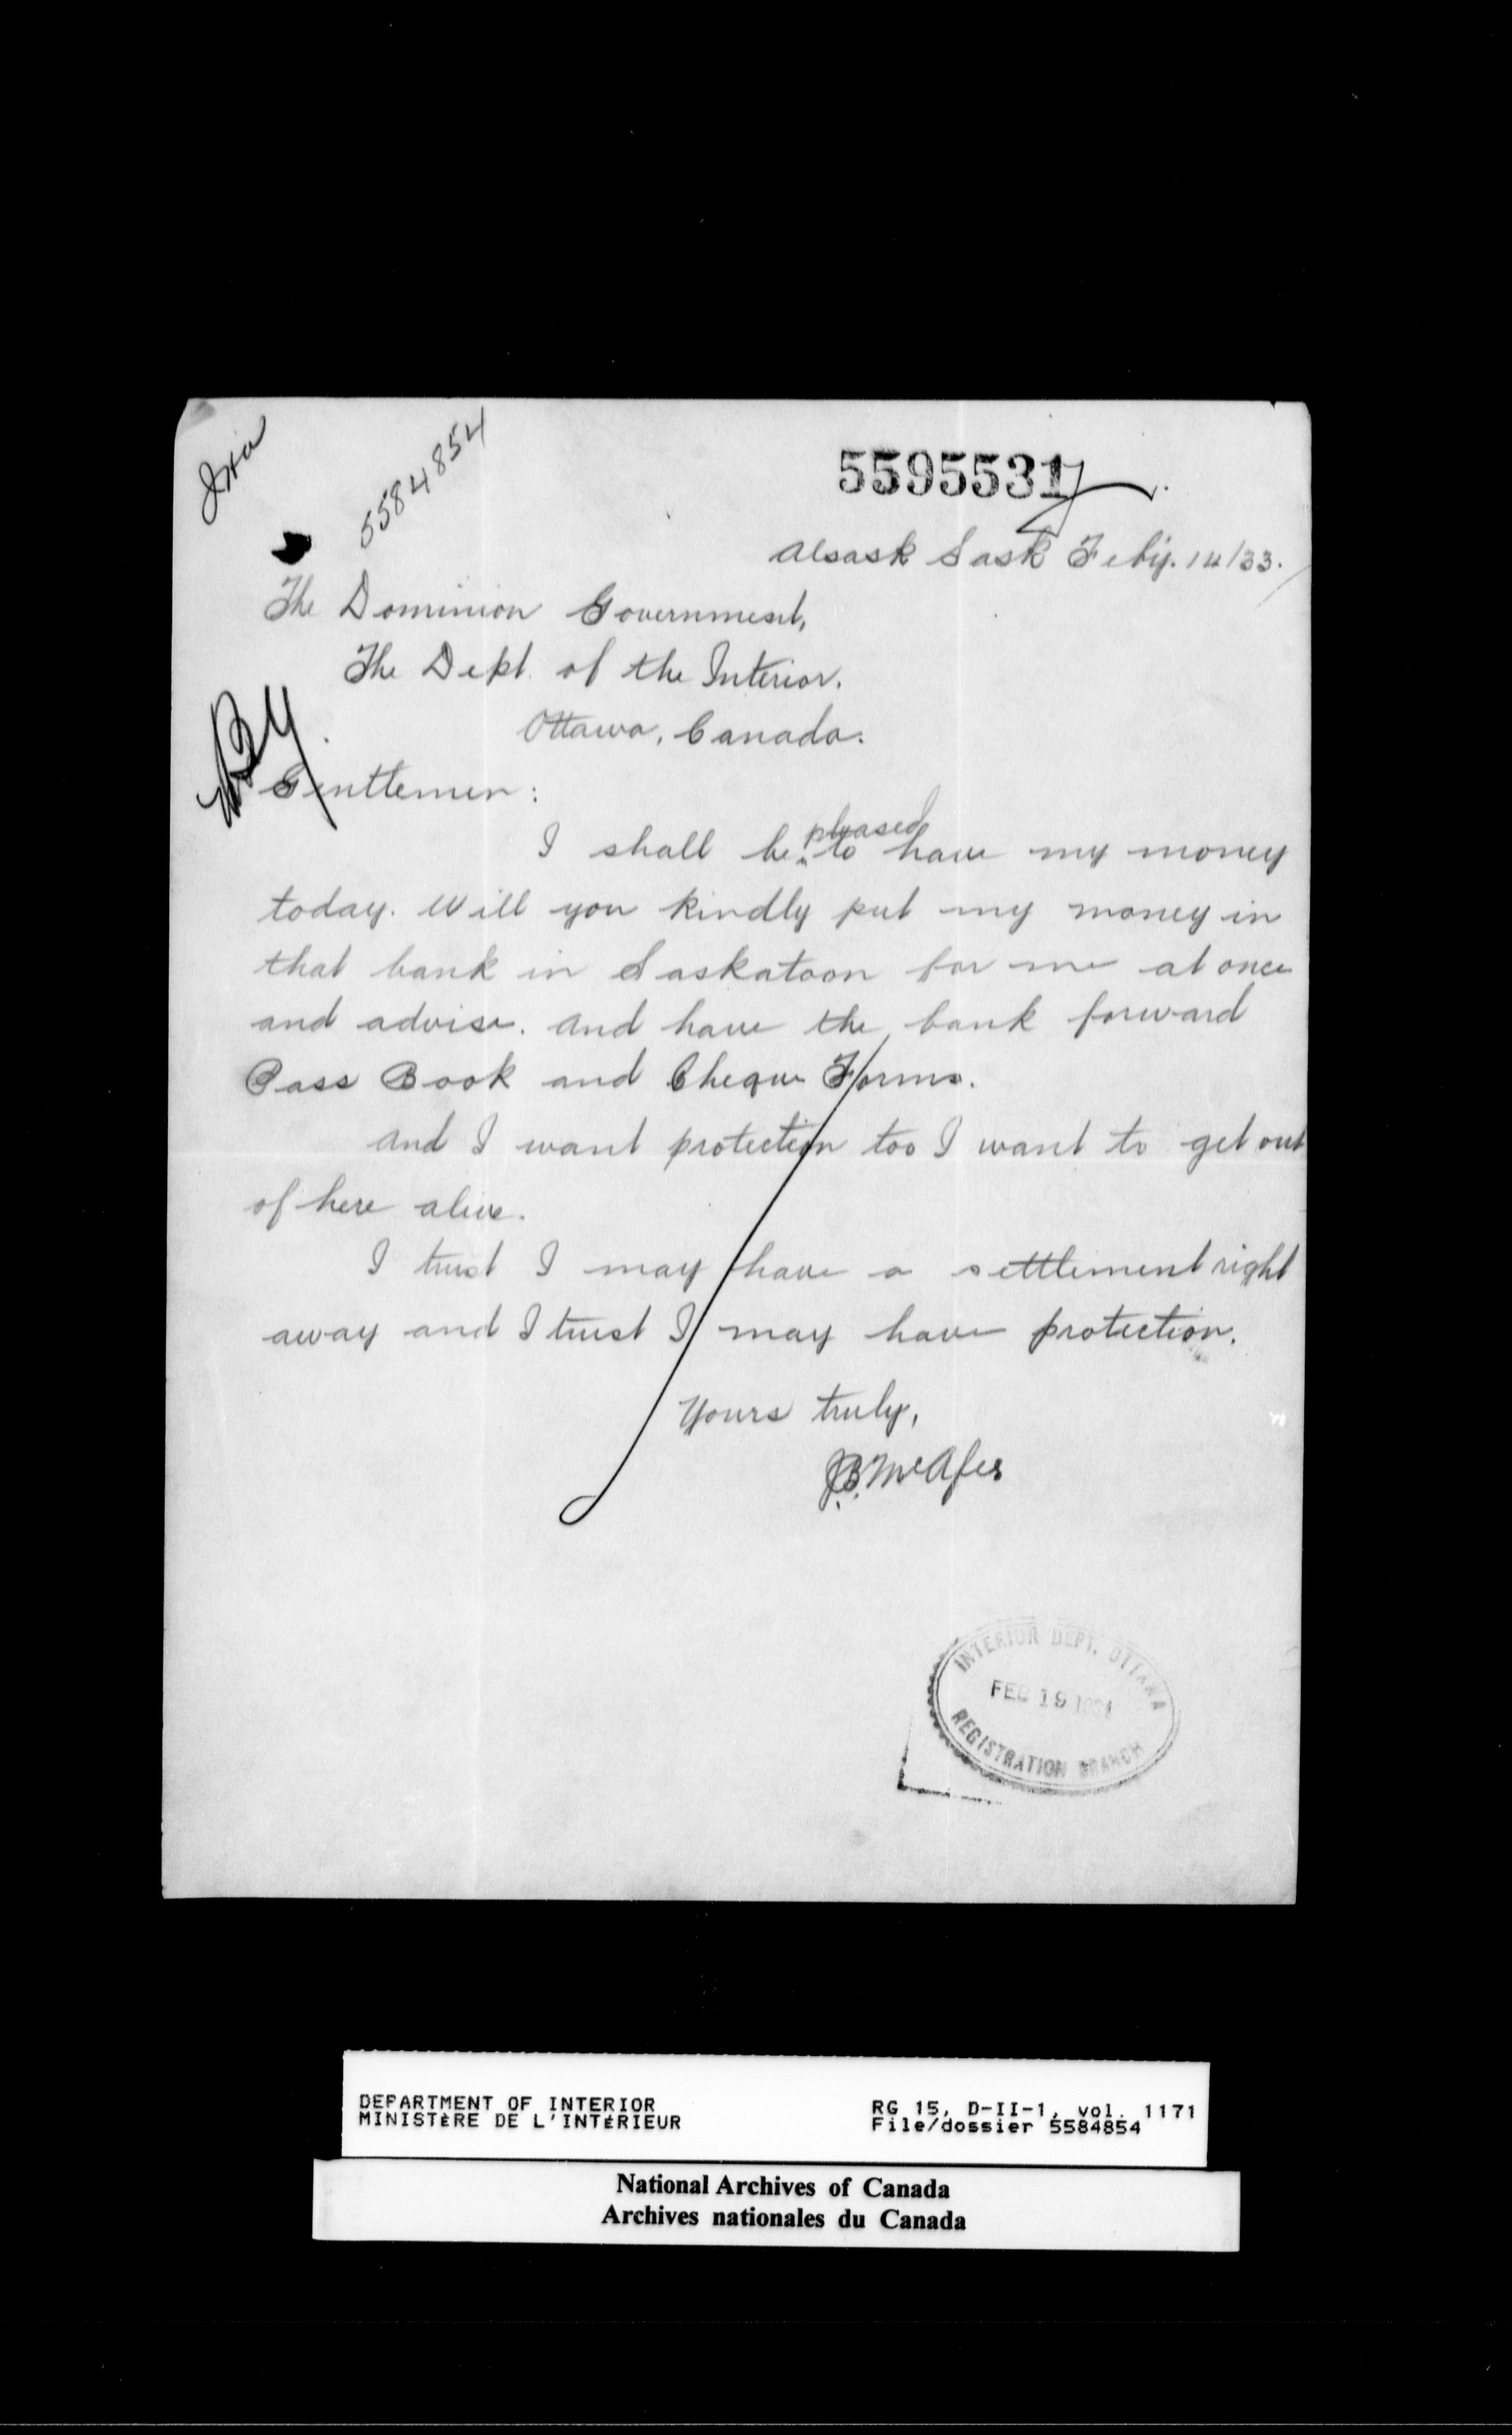 5584854
5595531
Alsask Sask Feby. 14/33.
The Dominion Government,
The Dept. of the Interior.
Ottawa, Canada.
Gentlemen:
I shall be pleased to have my money
today. Will you kindly put my money in
that bank in Saskatoon for me at once
and advise. And have the bank forward
Pass Book and Cheque Forms.
And I want protection too I want to get out
of here alive.
I trust I may have a settlement right
away and I trust I may have protection.
Yours truly,
J.B. McAfee
INTERIOR DEPT. OTTAWA
FEB 19
REGISTRATION BRANCH
DEPARTMENT OF INTERIOR
MINISTÈRE DE L'INTÉRIEUR
RG 15, D-II-1, vol. 1171
File/dossier 5584854
National Archives of Canada
Archives nationales du Canada